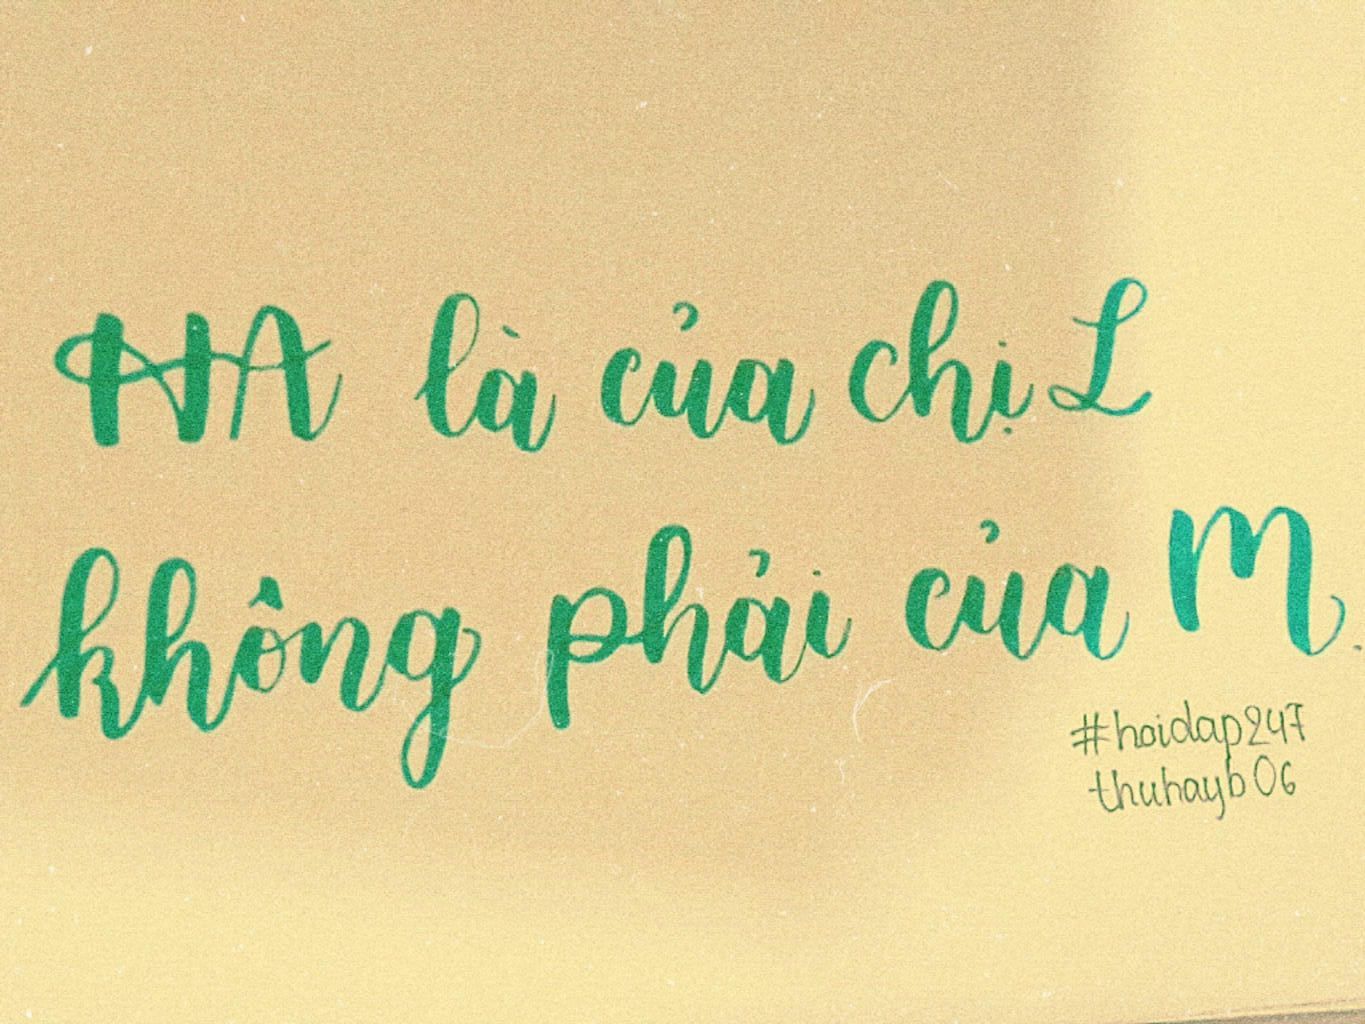 HA là của chị L
không phải của M.
#hoidap247
thuhayb06